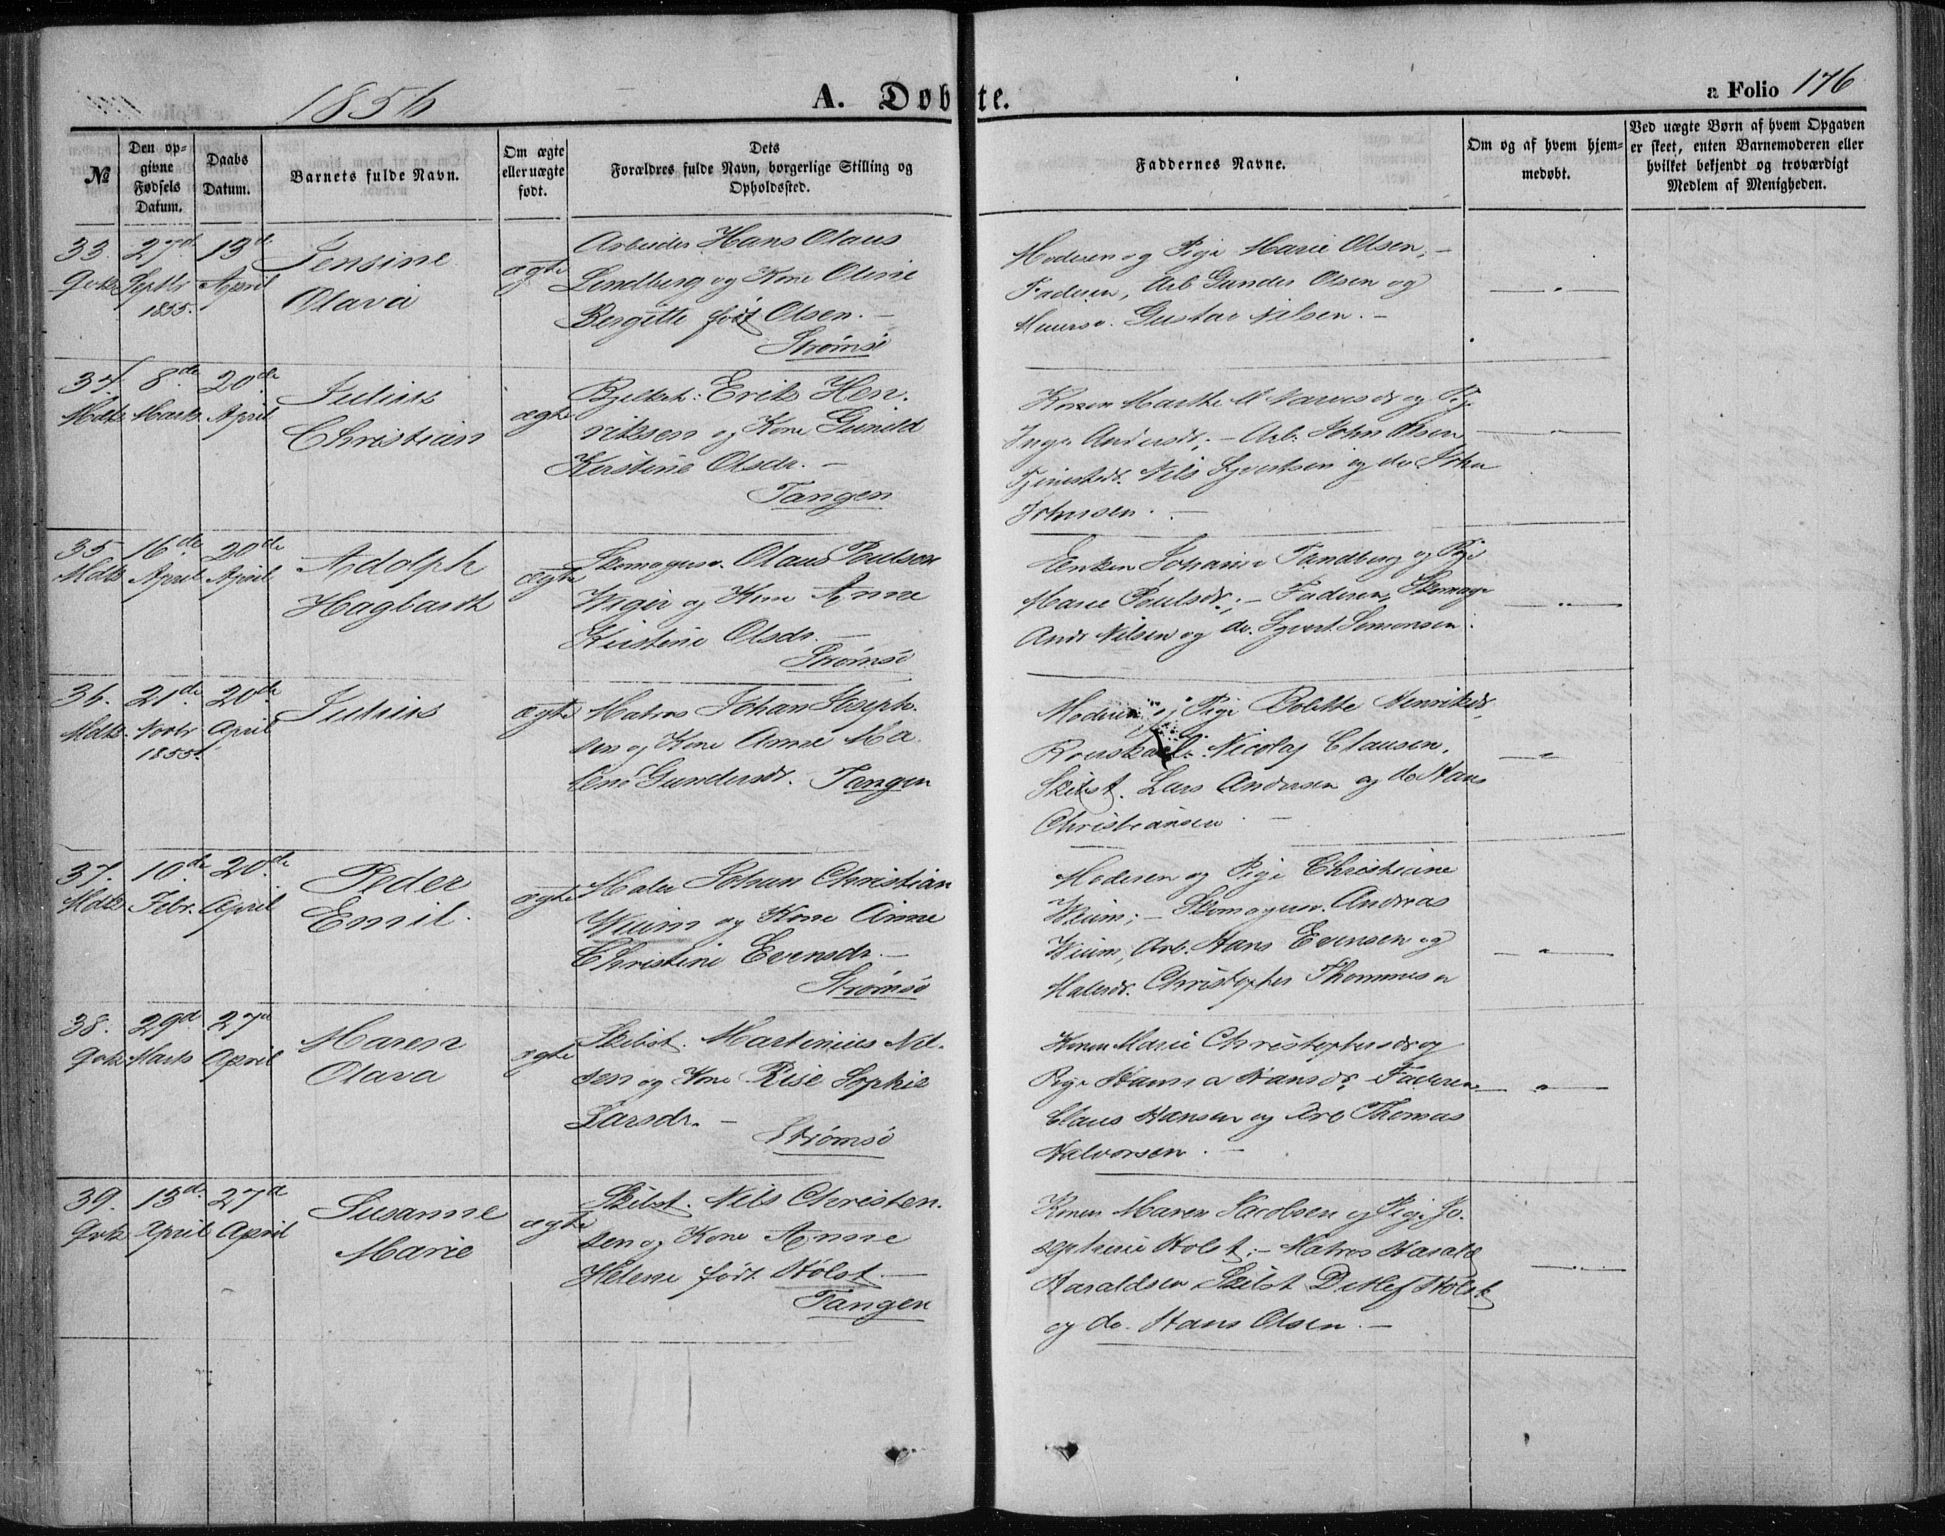 1856
A. Døbte.
a Folio 176
№
Den op-
givne
Fødsels
Datum.
Daabs
Datum.
Barnets fulde Navn.
Om ægte
eller uægte
født.
Dets
Forældres fulde Navn, borgerlige Stilling og
Opholdssted.
Faddernes Navne.
Om og af hvem hjem-
medøbt.
Ved uægte Børn af hvem Opgaven
er skeet, enten Barnemoderen eller
hvilket bekjendt og troværdigt
Medlem af Menigheden.
33. 27d 13d
Septbr April
1855.
Jensine
Olava
ægte
Arbeider Hans Olaus
Lindberg og Kone Oline
Bergitte født Olsen. –
Strømsø
Moderen og Pige Marie Olsen; –
Faderen, Arb Gunder Olsen og
Gustav Nilsen. –
34. 8de 20de
Marts April
Julius
Christian
ægte
Erik Hen-
riksen og Kone Gunild
Kirstine Olsdr. –
Tangen
Konen Marthe
Inge Andersdr; – Arb. John Olsen
Nils Syvertsen og do John
Johnsen. –
35 16de 20de
Mdk April April
Adolph
Hagbarth
ægte
Skomagersv. Olaus Poulsen
og Kone Anne
Kirstine Olsdr. –
Strømsø
Enken Johanne Sandberg og Pige
Marie Poulsdr; – Faderen, Skomager
Andr Nilsen og do. Syvert Simonsen.
36. 21de 20de
Mdk. Novbr April
1855.
Julius
ægte
Matros Johan Joseph-
sen og Kone Anne Ma-
lene Gundersdr. Tangen
Moderen og Pige Bolette Henriksdr,
Nicolaj Clausen,
Skibst. Lars Andersen og do Hans
Christiansen. –
37. 10de 20de
Mdk Febr. April
Peder
Emil.
ægte
Maler Johan Christian
Wium og Kone Anne
Christine Evensdr. –
Strømsø
Moderen og Pige Christiane
Wium; – Skomagersv. Andreas
Wium, Arb. Hans Evensen og
Malersv. Christopher Thommesen
38. 29d 27d
Marts April
Maren
Olava
ægte
Skibst. Martinius Nil-
sen og Kone Rise Sophie
Larsdr. –
Strømsø
Konen Marie Christophersdr og
Pige Hanna Hansdr, Faderen
Claus Hansen og Arb Thomas
Halvorsen. –
39. 13d. 27d
April April
Susanne
Marie
ægte
Skibst. Nils Christen-
sen og Kone Anne
Helene født Holst. –
Tangen
Konen Maren Jacobsen og Pige Jo-
sephine Holst; – Matros Harald
Haraldsen Skibst Detlef Holst
og do. Hans Olsen. –